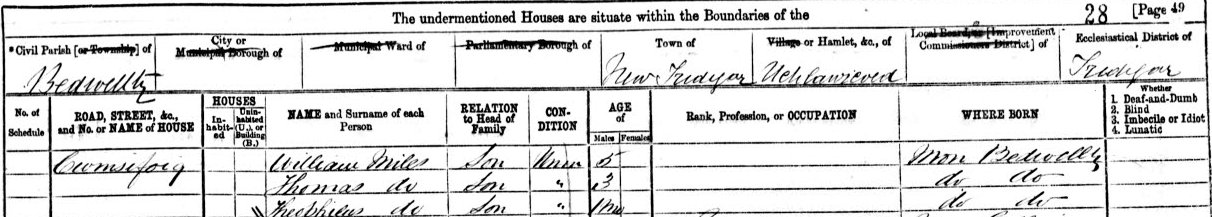 The undermentioned Houses are situate within the Boundaries of the 28 [Page 49
*Civil Parish [or Township] of City or Municipal Borough of Municipal Ward of Parliamentary Borough of Town of Village or Hamlet, &c., of Local Board, or [Improvement Commissioners District] of Ecclesiastical District of
Bedwellty New Tredegar Uchlawrcoed Tredegar
No. of Schedule ROAD, STREET, &c., and No. or NAME of HOUSE HOUSES In-habited Unin-habited (U.), or Building (B.) NAME and Surname of each Person RELATION to Head of Family CON-DITION AGE of Males Females Rank, Profession, or OCCUPATION WHERE BORN Whether 1. Deaf-and-Dumb 2. Blind 3. Imbecile or Idiot 4. Lunatic
William Miles Son Unm 5 Mon Bedwellty
Thomas do Son " 3 do do
Theophilus do Son " 1m do do